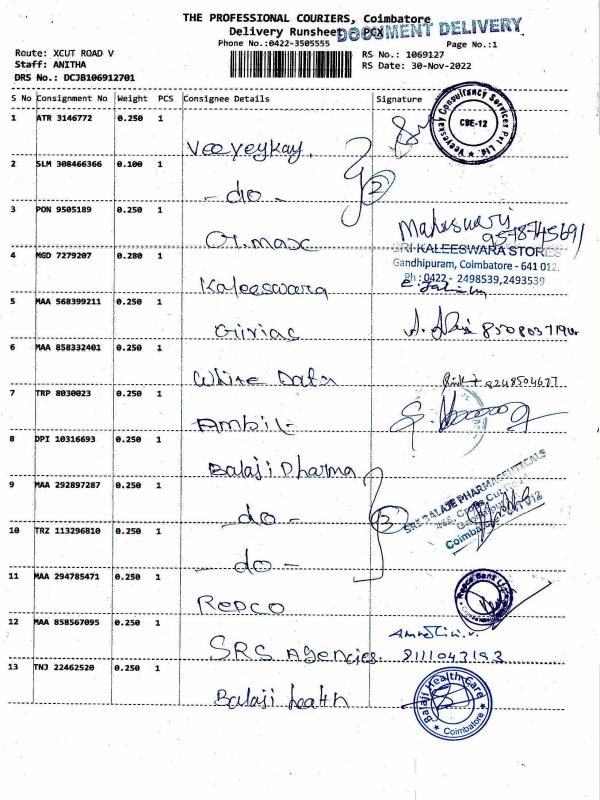 THE PROFESSIONAL COURIERS, Coimbatore
Delivery Runsheet - PCX
DOCUMENT DELIVERY
Phone No.:0422-3505555
Page No.:1
Route: XCUT ROAD V
RS No.: 1069127
Staff: ANITHA
RS Date: 30-Nov-2022
DRS No.: DCJB106912701
S No Consignment No Weight PCS Consignee Details Signature
1 ATR 3146772 0.250 1 Veeyeykay
Veeyeskay Consultancy Services Pvt Ltd. CBE-12
2 SLM 308466366 0.100 1 - do -
2
3 PON 9505189 0.250 1
Maheswari
9578745691
4 MGD 7279207 0.280 1 Kaleeswara
SRI KALEESWARA STORES
Gandhipuram, Coimbatore - 641 012.
Ph : 0422 - 2498539,2493539
5 MAA 568399211 0.250 1 Girias
6 MAA 858332401 0.250 1 White Data
7 TRP 8030023 0.250 1 Ambit
8 DPI 10316693 0.250 1 Balaji Dharma
9 MAA 292897287 0.250 1 - do -
3
SRI BALAJE PHARMACEUTICALS
Coimbatore
012
10 TRZ 113296810 0.250 1 - do -
11 MAA 294785471 0.250 1 Repco
Repco Bank Ltd
12 MAA 858567095 0.250 1 SRS Agencies
8111043193
13 TNJ 22462520 0.250 1 Balaji health
Balaji Health Care
Coimbatore